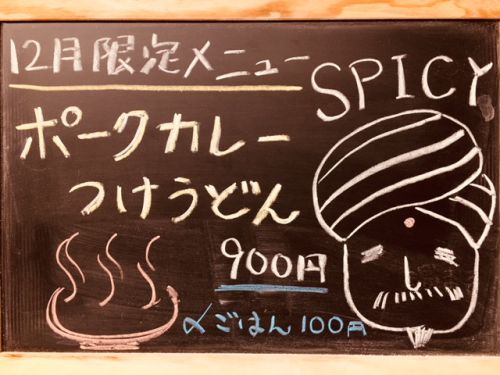 12月限定メニュー
SPICY
ポークカレー
つけうどん
900円
〆ごはん100円